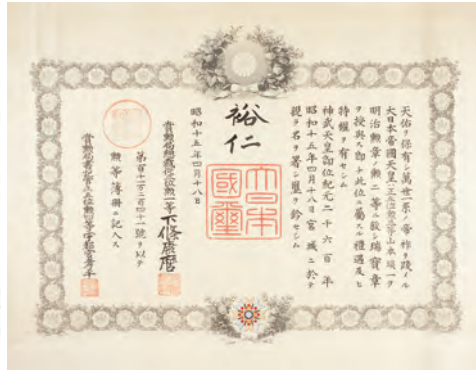 天佑ヲ保有シ萬世一系ノ帝祚ヲ踐ミタル
大日本帝國天皇ハ山本
明治勲章ノ勲二等ニ敍シ瑞寶章
ヲ授與ス即チ此位ニ屬スル禮遇及ヒ
特權ヲ有セシム
神武天皇即位紀元二千六百年
昭和十五年四月十八日宮城ニ於テ
親ラ名ヲ署シ璽ヲ鈐セシム
裕仁
大日本
國璽
昭和十五年四月十八日
賞勲局總裁勲一等下條康麿
ヲ以テ
勲等簿冊ニ記入ス
賞勲局書記官